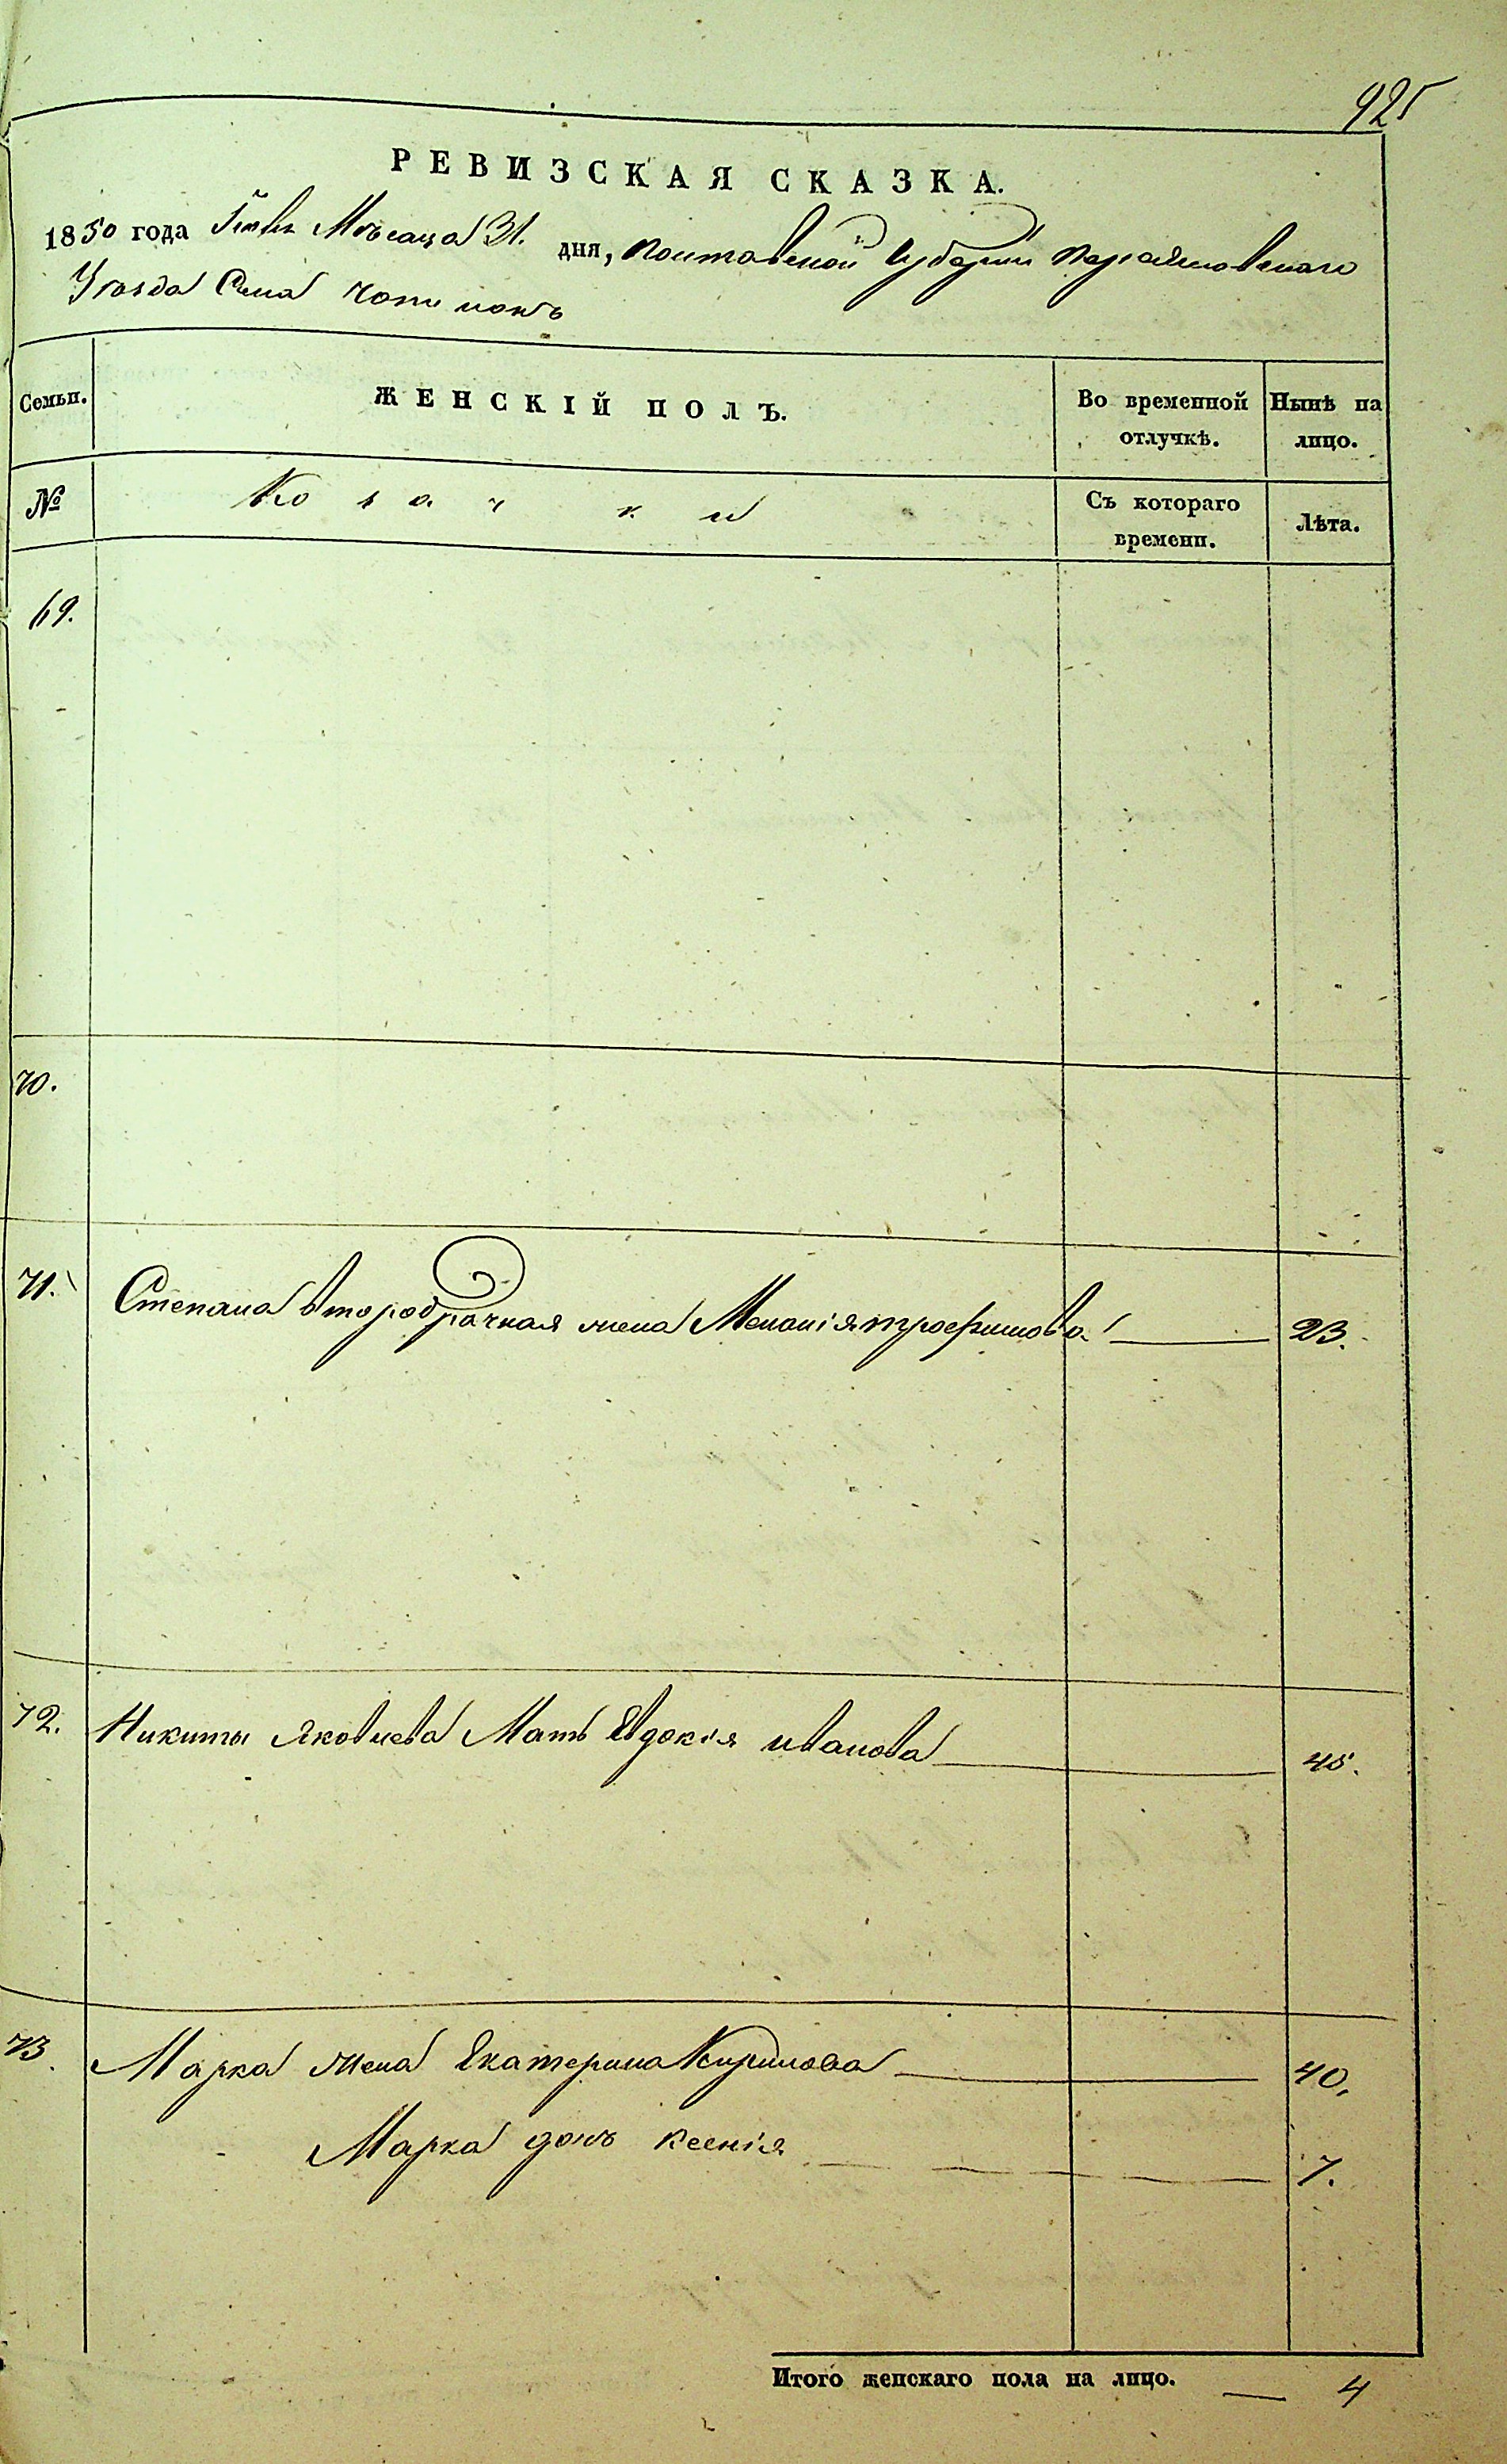 925
РЕВИЗСКАЯ СКАЗКА.
1850 года Мѣсяца 31. дня, Полтавской Губернии
Уезда Села
Семьи. ЖЕНСКІЙ ПОЛЪ. Во временной отлучкѣ. Нынѣ на лицо.
№ Козачки Съ котораго времени. Лѣта.
69.
70.
71. Степана второбрачная жена Меланія трофимова 23.
72. Никиты Яковлева Мать Евдокія иванова 45.
73. Марка жена Екатерина Кирилова 40.
Марка дочь Ксенія 7.
Итого женскаго пола на лицо. 4